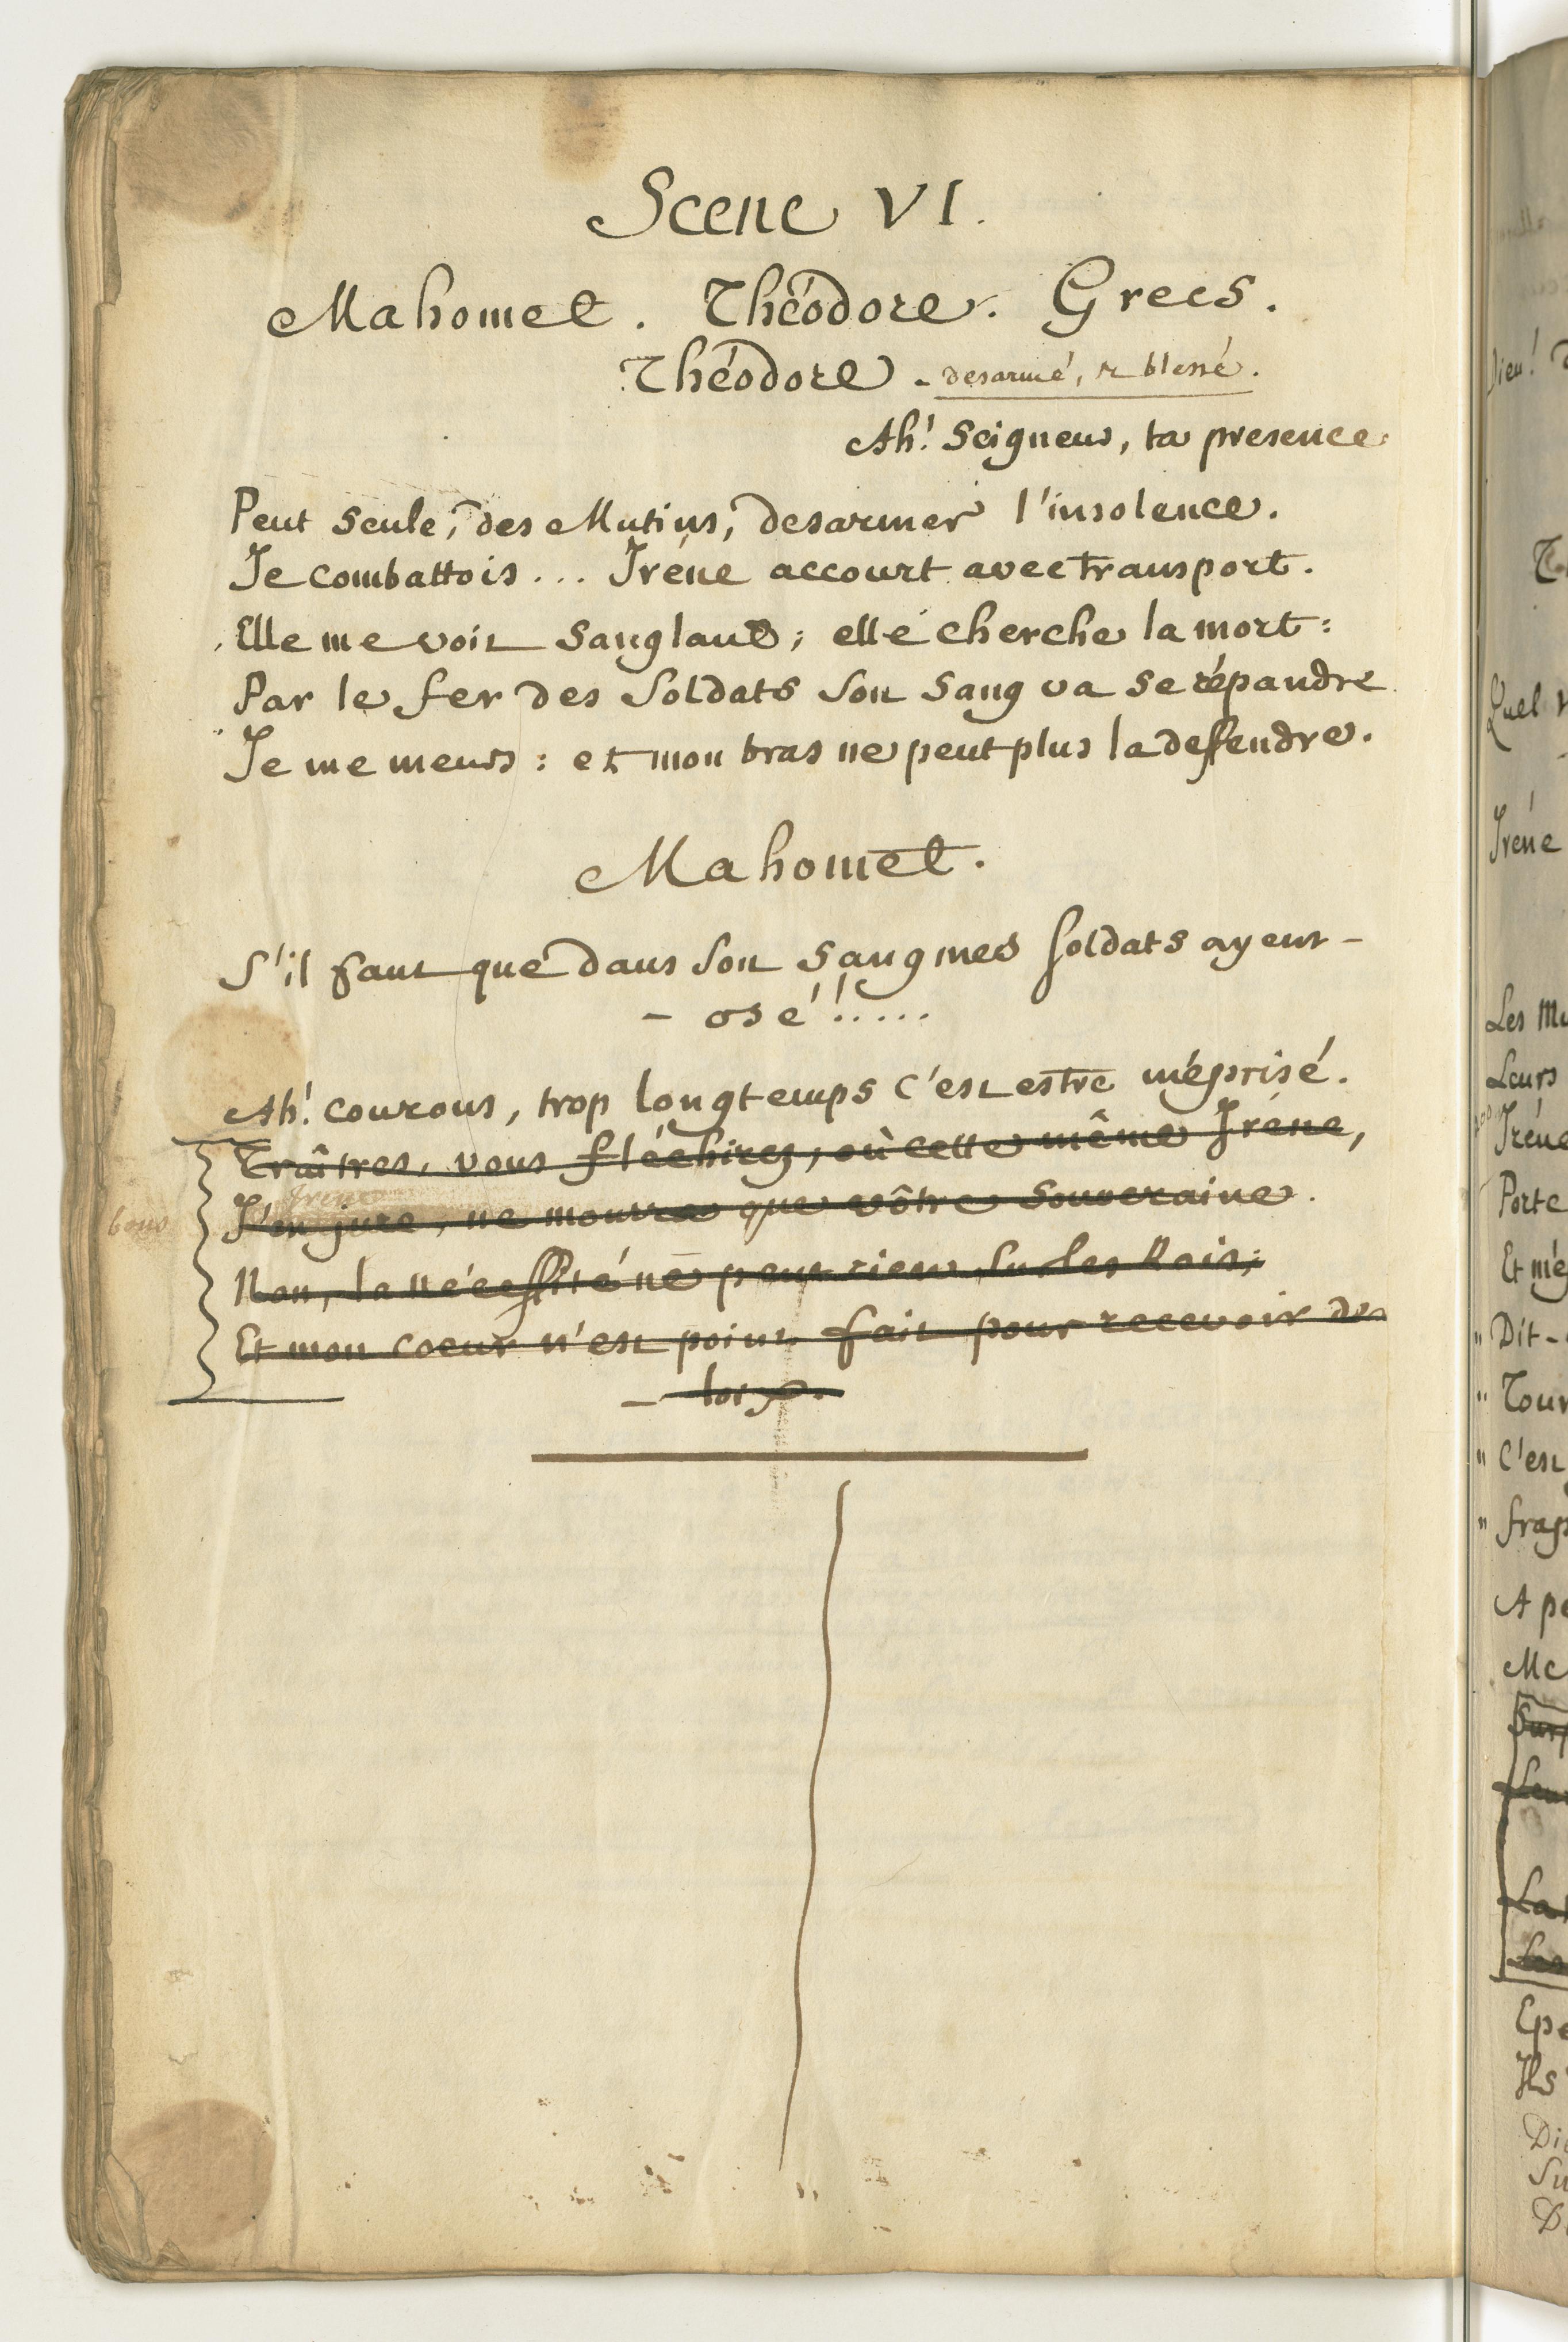 Scene VI.
Mahomet. Théodore. Grecs.
Théodore - desarmé, & blessé.
Ah! Seigneur, ta presence
Peut seule, des Mutins, desarmer l'insolence.
Je combattois... Iréne accourt avec transport.
Elle me voit sanglant; elle cherche la mort:
Par le fer des Soldats son sang va se répandre
Je me meurs: et mon bras ne peut plus la deffendre.
Mahomet.
S'il faut que dans son sang mes soldats ayent -
- osé!.....
Ah! courons, trop longtemps c'est estre méprisé.
Traîtres, vous fléchirez, où cette même Iréne,
Irene
bons
J'en jure, ne mourra que vôtre Souveraine.
Non, la nécessité ne peut rien sur les Rois;
Et mon coeur n'est point fait pour recevoir des
- loix.
Dieu!
Quel
Iréne
Les Mu
Leurs
Iréne
Porte
Et mé
" Dit-
" Tour
" C'est
" frap
A pe
Me
Sur
La
Les
Epo
Ils
Di
Su
D